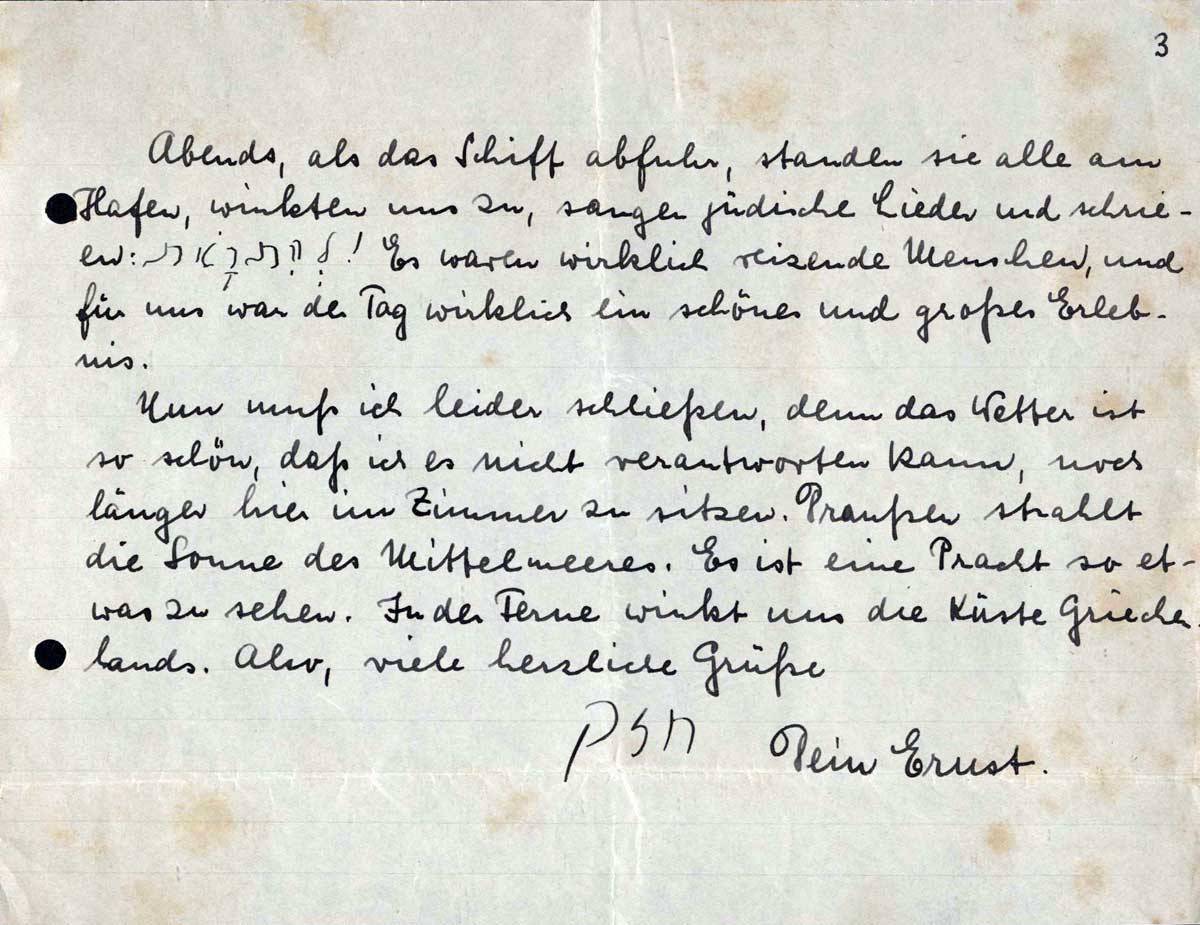 3
Abends, als das Schiff abfuhr, standen sie alle am
Hafen, winkten uns zu, sangen jüdische Lieder und schrie-
en: להתראות! Es waren wirklich reizende Menschen, und
für uns war der Tag wirklich ein schönes und großes Erleb-
nis.
Nun muß ich leider schließen, denn das Wetter ist
so schön, daß ich es nicht verantworten kann, noch
länger hier im Zimmer zu sitzen. Draußen strahlt
die Sonne des Mittelmeeres. Es ist eine Pracht so et-
was zu sehen. In der Ferne winkt uns die Küste Griechen-
lands. Also, viele herzliche Grüße
חזק Dein Ernst.